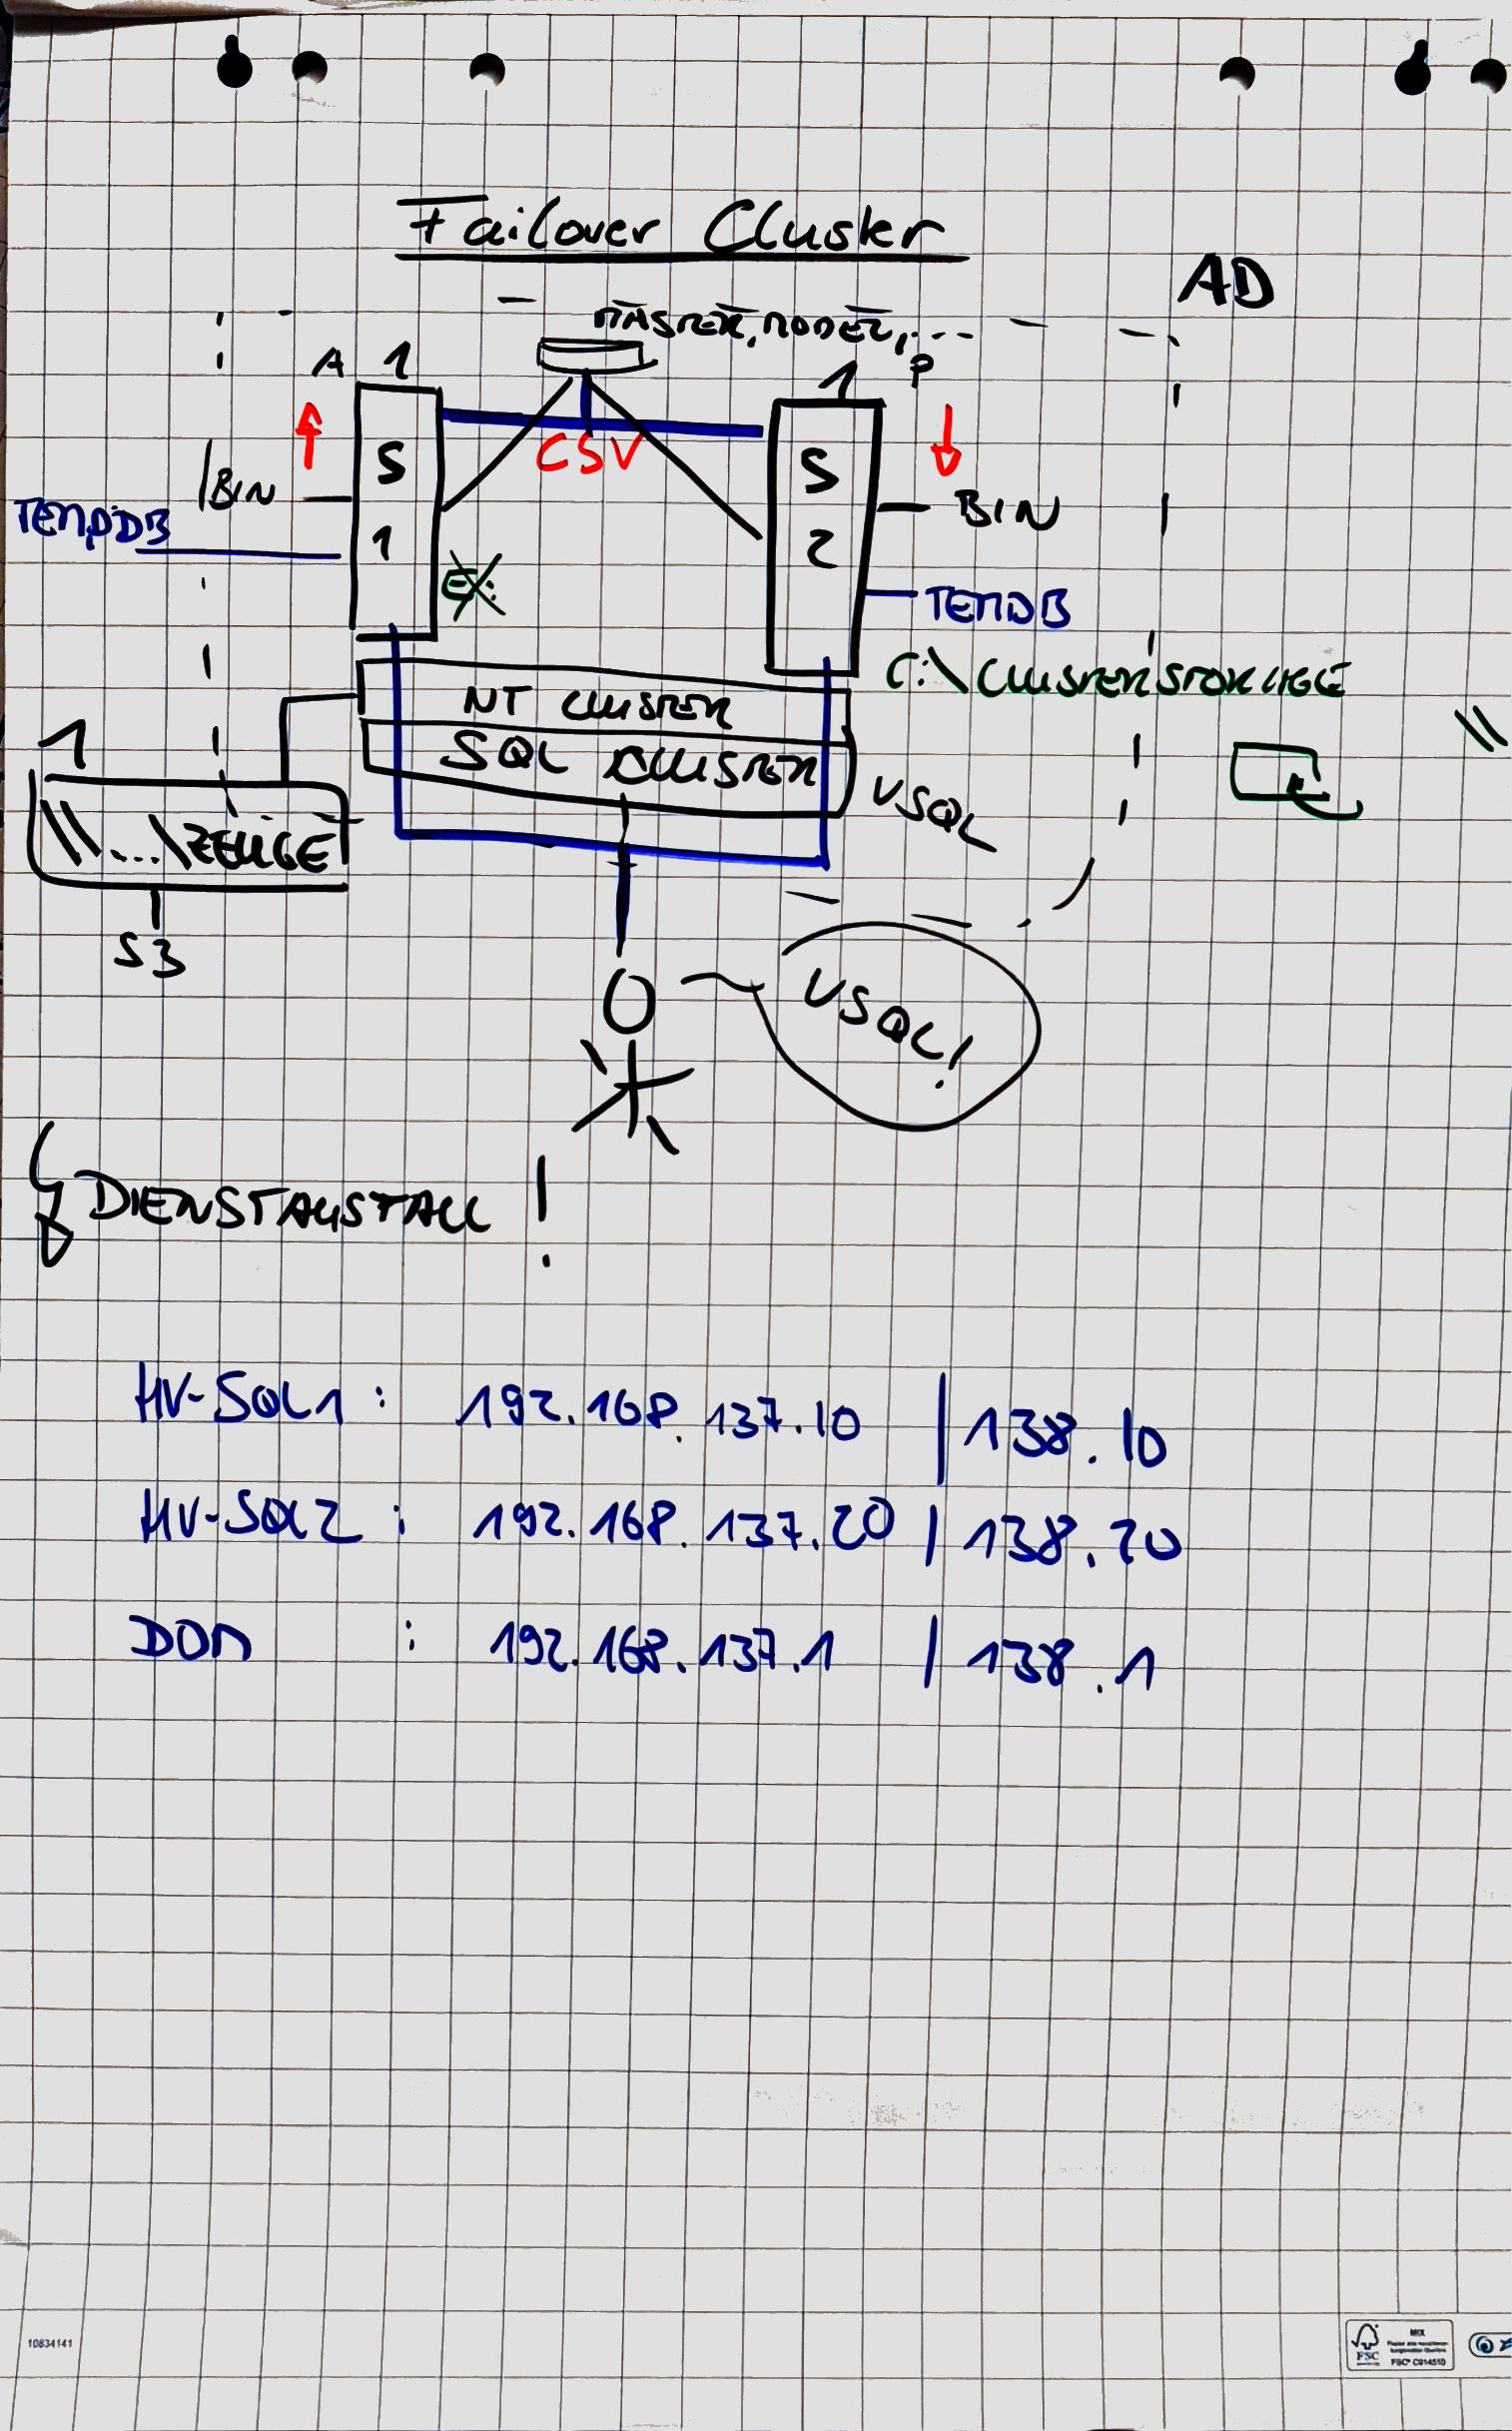 Failover Cluster
AD
MASTER, MODEL, ...
A 1
1 P
S
1
CSV
S
2
BIN
BIN
TEMPDB
E:
TEMDB
C:\CLUSTERSTORAGE
NT CLUSTER
SQL CLUSTER
VSQL
1
\\...\ZEUGE
\\
S3
VSQL!
DIENSTAUSFALL !
HV-SQL1 : 192.168.137.10 | 138.10
HV-SQL2 : 192.168.137.20 | 138.20
DOM : 192.168.137.1 | 138.1
10834141
FSC
MIX
FSC® C014510